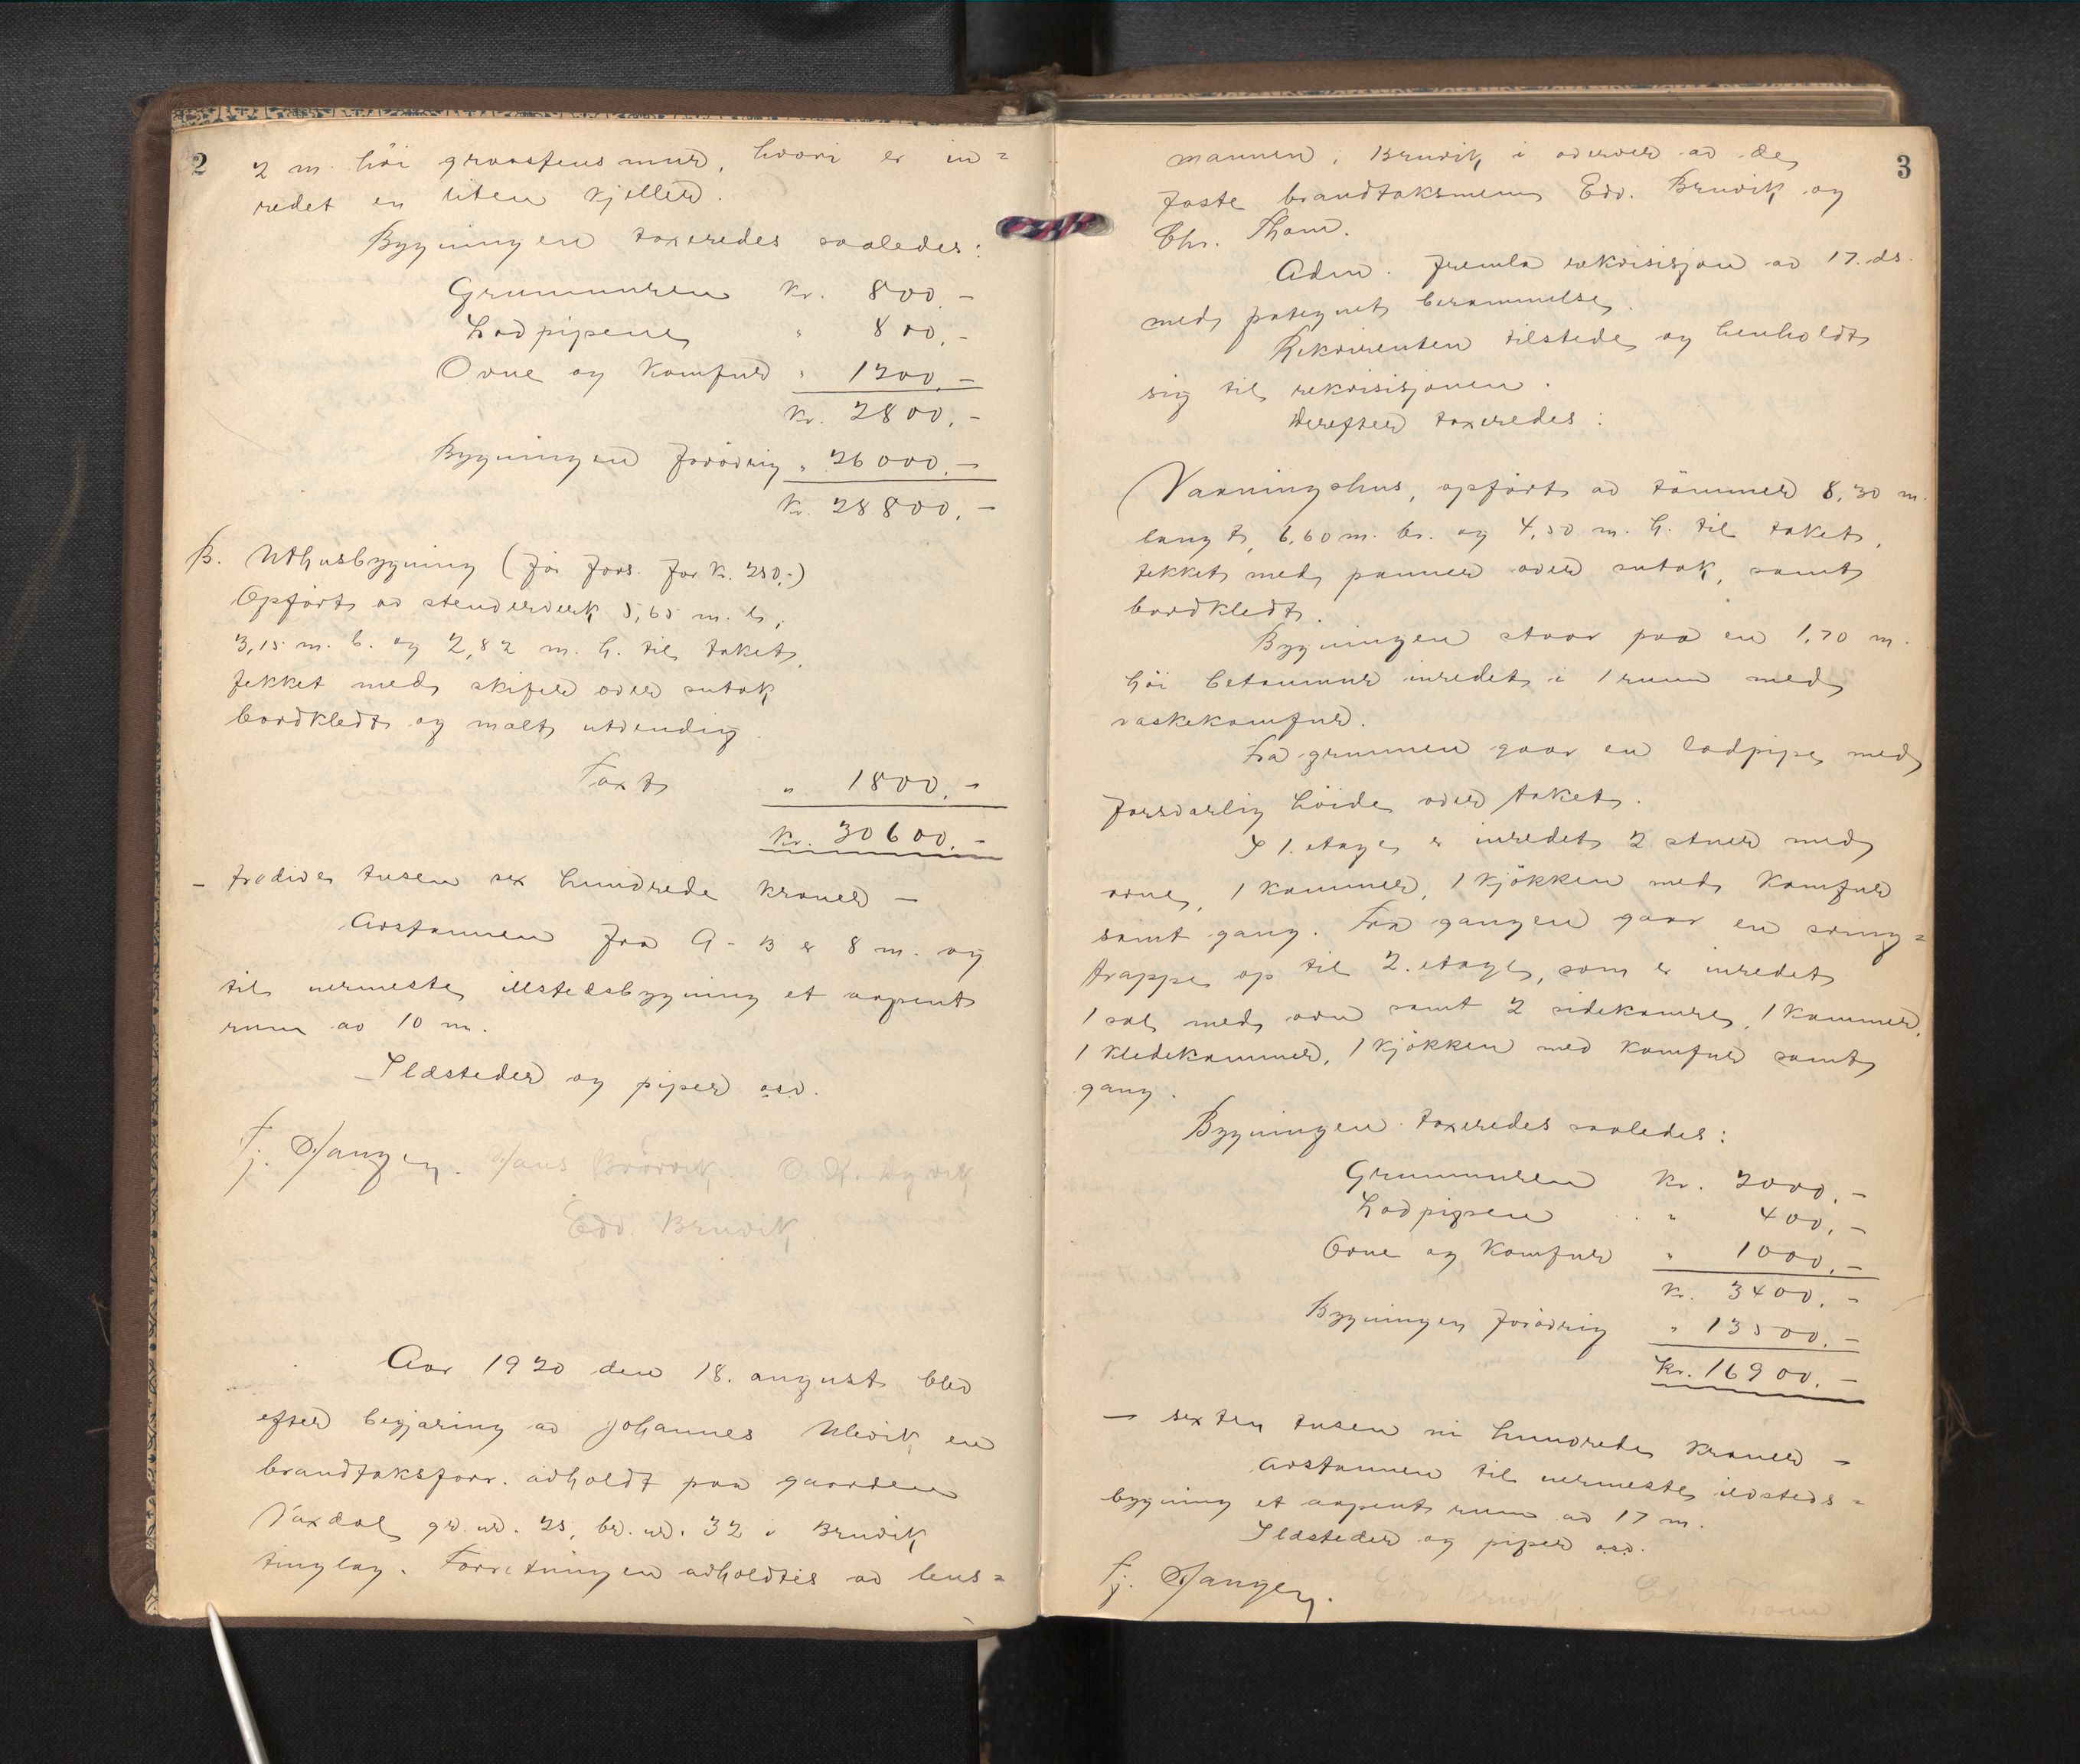 2
2 m. høi graastensmur, hvori er in=
redet en liten kjeller.
Bygningen taxeredes saaledes:
Grunnmuren kr. 800.-
Ladpipene " 800.-
Ovne og komfur " 1200.-
kr. 2800.-
Bygningen forøvrig " 26000.-
kr. 28800.-
B. Uthusbygning (før fors. for k. 250.-)
Opført av stenderverk 5,65 m. l.,
3,15 m. b. og 2,82 m. h. til taket,
tekket med skifer over sutak
bordkledt og malt utvendig.
Taxt " 1800.-
kr. 30600.-
- tredive tusen sex hundrede kroner -
Avstannen fra A - B er 8 m. og
til nermeste illstedsbygning et aapent
rum av 10 m.
Ildsteder og piper osv.
Hans Brørvik O. K. Dyvik
Edv. Bruvik
Aar 1920 den 18. august blev
efter begjæring av Johannes Ulevik en
brandtaksforr. avholdt paa gaarden
Vaxdal gr. nr. 25, br. nr. 32 i Bruvik
tinglag. Forretningen avholdtes av lens=
3
mannen i Bruvik i overver av de
faste brandtaksmenn Edv. Bruvik og
Chr. Tham.
Adm. fremla rekvisisjon av 17. ds.
med pategnet berammelse.
Rekvirenten tilstede og henholdt
sig til rekvisisjonen.
Derefter taxeredes:
Vaaningshus, opført av tømmer 8,30 m.
langt, 6,60 m. br. og 4,50 m. h. til taket,
tekket med panner over sutak, samt
bordkledt.
Bygningen staar paa en 1,70 m.
høi betonmur inredet i 1 rum med
vaskekomfur.
Fra grunnen gaar en ladpipe med
forsvarlig høide over taket.
I 1. etage er inredet 2 stuer med
ovne, 1 kammer, 1 kjøkken med komfur
samt gang. Fra gangen gaar en sving=
trappe op til 2. etage, som er inredet
1 sal med ovn samt 2 sidekamre, 1 kammer,
1 kledekammer, 1 kjøkken med komfur samt
gang.
Bygningen taxeredes saaledes:
Grunnmuren kr. 2000.-
Ladpipen " 400.-
Ovne og komfur " 1000.-
kr. 3400.-
Bygningen forøvrig " 13500.-
kr. 16900.-
- sexten tusen ni hundrede kroner -
Avstannen til nermeste ildsteds=
bygning et aapent rum av 17 m.
Ildsteder og piper osv.
Edv. Bruvik. Chr. Tham